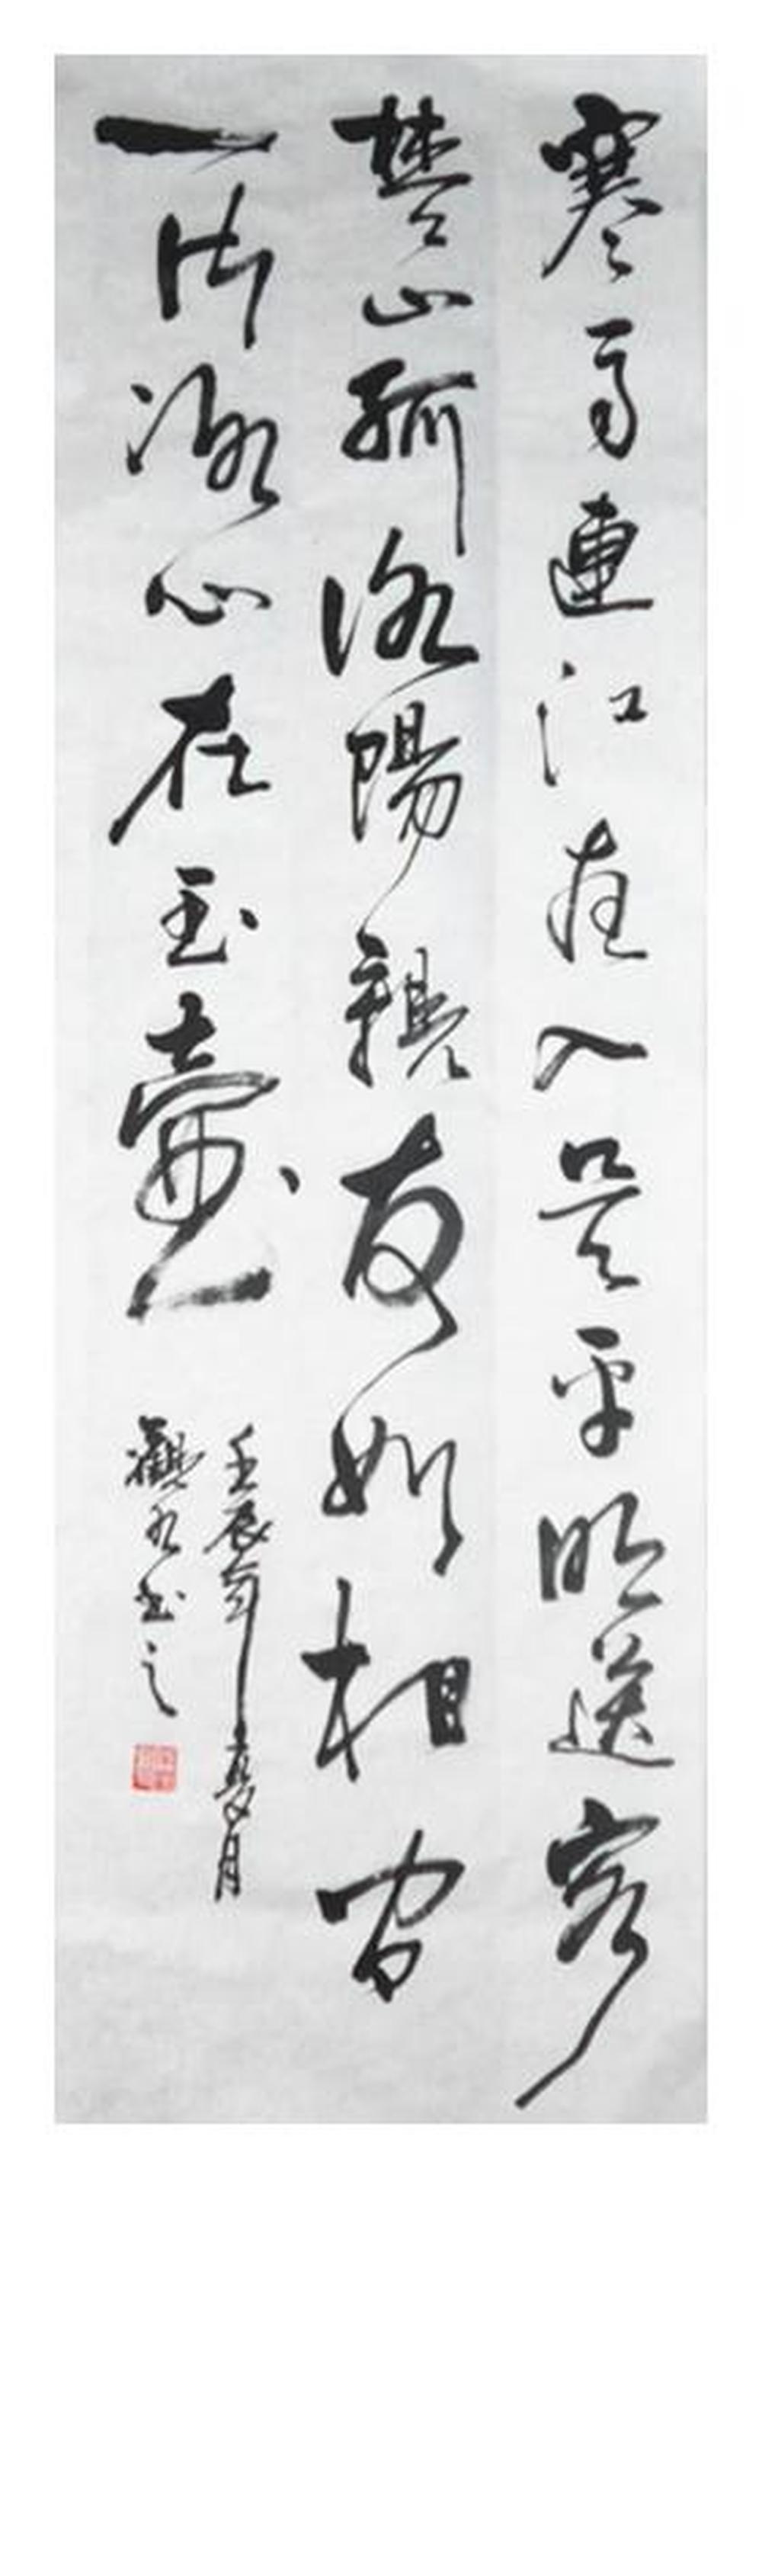 寒雨連江夜入吳平明送客
楚山孤洛陽親友如相問
一片冰心在玉壺
壬辰年夏月
觀水書之